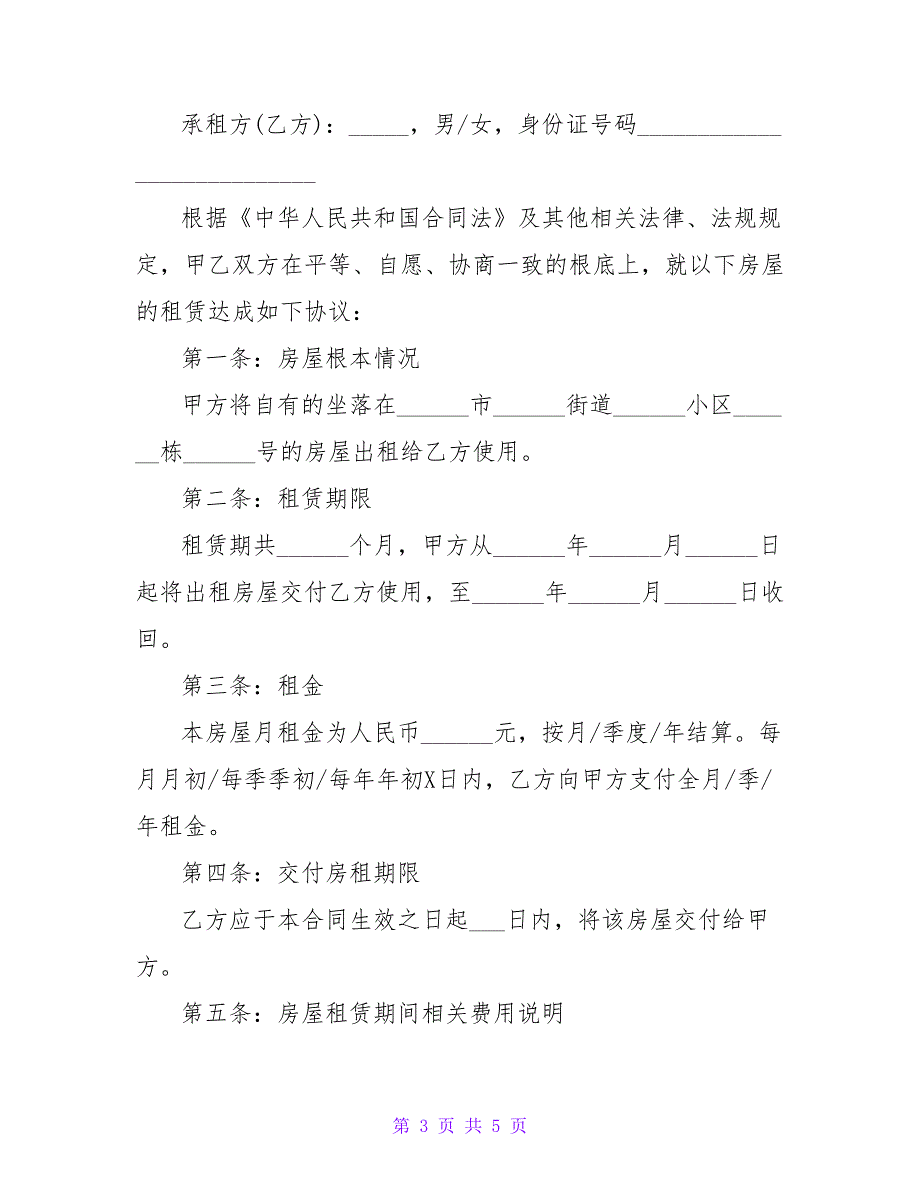 承租方(乙方)：_____，男/女，身份证号码____________
_______________
根据《中华人民共和国合同法》及其他相关法律、法规规
定，甲乙双方在平等、自愿、协商一致的根底上，就以下房屋
的租赁达成如下协议：
第一条：房屋根本情况
甲方将自有的坐落在______市______街道______小区____
__栋______号的房屋出租给乙方使用。
第二条：租赁期限
租赁期共______个月，甲方从______年______月______日
起将出租房屋交付乙方使用，至______年______月______日收
回。
第三条：租金
本房屋月租金为人民币______元，按月/季度/年结算。每
月月初/每季季初/每年年初X日内，乙方向甲方支付全月/季/
年租金。
第四条：交付房租期限
乙方应于本合同生效之日起___日内，将该房屋交付给甲
方。
第五条：房屋租赁期间相关费用说明
第 3 页 共 5 页